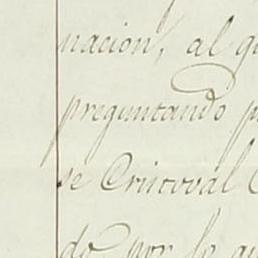 nacion, al q
preguntando p
se Cristoval C
do por lo qu